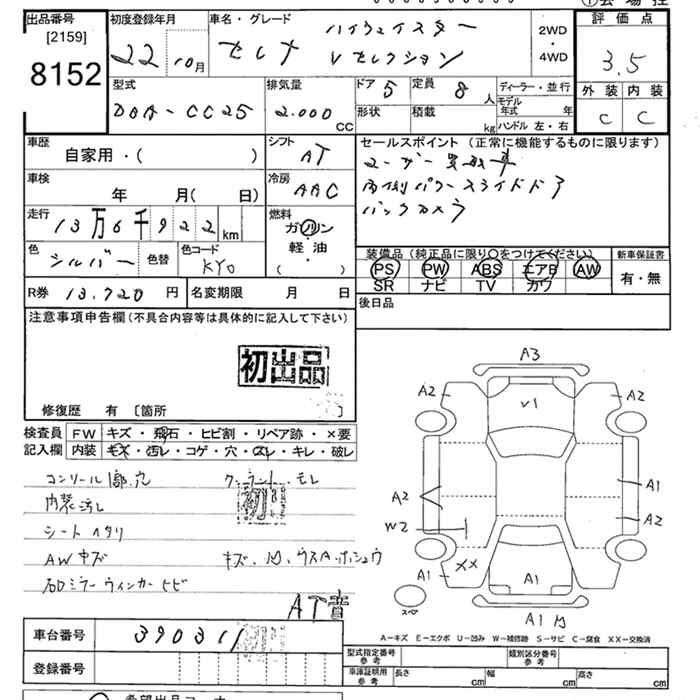 出品番号
[2159]
8152
初度登録年月
22 10月
車名・グレード
ハイウェイスター
セレナ Vセレクション
2WD
・
4WD
評価点
3.5
外装 内装
C C
型式
DBA-CC25
排気量
2.000 CC
ドア 5
定員 8人
形状
積載 kg
ディーラー・並行
モデル年式 年
ハンドル 左・右
車歴
自家用・( )
シフト
AT
車検
年 月( 日)
冷房
AAC
走行
13万6千922km
燃料
ガソリン
軽油
・
( )
色
シルバー
色替
色コード
KY0
R券 13,720円
名変期限 月 日
セールスポイント (正常に機能するものに限ります)
ユーザー買取車
両側パワースライドドア
バックカメラ
装備品(純正品に限り○をつけてください)
PS PW ABS エアB AW
SR ナビ TV カワ
新車保証書
有・無
後日品
注意事項申告欄(不具合内容等は具体的に記入して下さい)
初出品
修復歴 有 〔箇所 〕
検査員 FW キズ・飛石・ヒビ割・リペア跡・×要
記入欄 内装 キズ・汚レ・コゲ・穴・スレ・キレ・破レ
コンソール部穴
クーラント モレ
内装汚レ
シート ヘタリ
AWキズ
キズ、凹、ウスA・ホシュウ
右Dミラーウィンカーヒビ
AT音
車台番号 390311
登録番号
A3
A2 A2
V1
A1
A2 A2
W2
XX
A1 A1
スペ
A1凹
A-キズ E-エクボ U-凹み W-補修跡 S-サビ C-腐食 XX-交換済
型式指定番号 参考
類別区分番号 参考
車庫証明用 参考 長さ cm 幅 cm 高さ cm